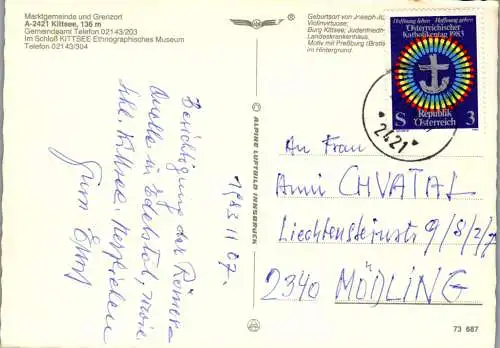 Marktgemeinde und Grenzort
A-2421 Kittsee, 136 m
Gemeindeamt Telefon 02143/203
Im Schloß KITTSEE Ethnographisches Museum
Telefon 02143/304
Geburtsort von Joseph Jo
Violinvirtuose;
Burg Kittsee; Judenfriedh
Landeskrankenhaus.
Motiv mit Preßburg (Bratis
im Hintergrund
Hoffnung leben Hoffnung geben
Österreichischer
Katholikentag 1983
Republik
Österreich
S 3
2421
© ALPINE LUFTBILD INNSBRUCK
Besichtigung der Römer
Quelle in Edelstal, sowie
Kittsee.
1983 11 07.
An Frau
Anni CHVATAL
Liechtensteinstr 9/8/2/7
2340 MÖDLING
73 687